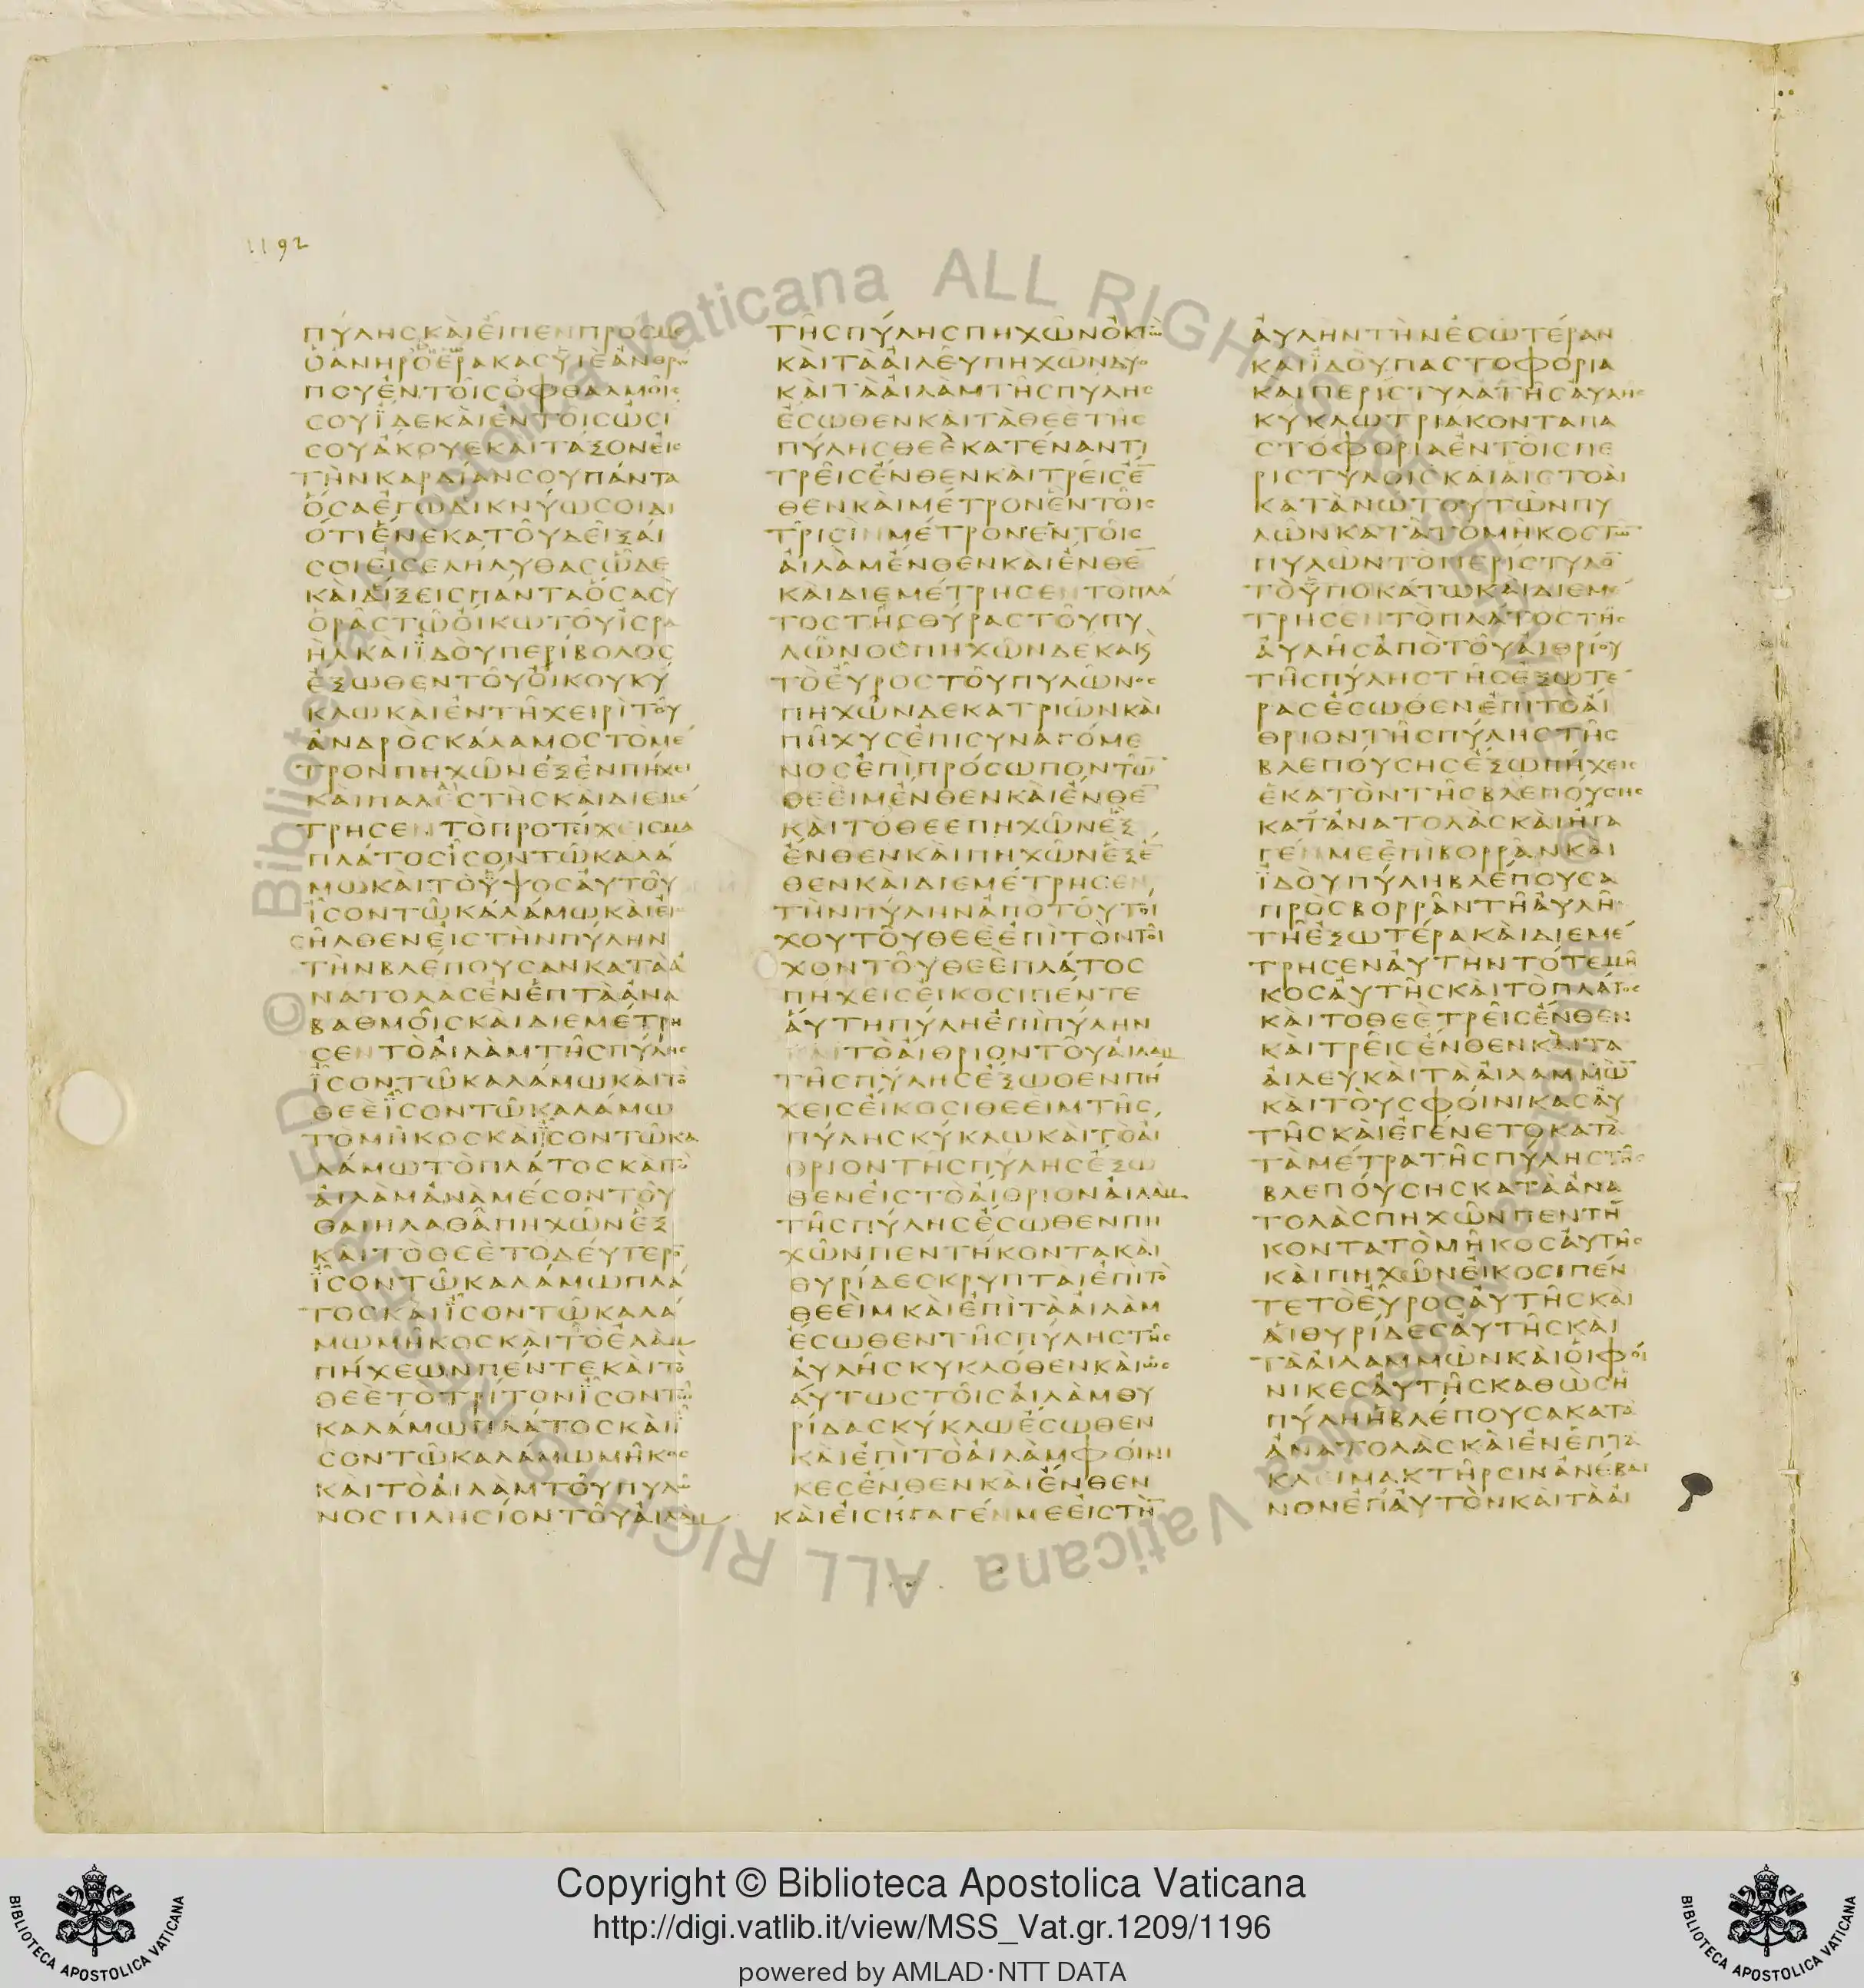 1192
ΠΥΛΗСΚΑΙΕΙΠΕΝΠΡΟСΜΕ
ΟΑΝΗΡΟΕΡΑΚΑСΥΙΕΑΝΘΡΩ
ΠΟΥΕΝΤΟΙСΟΦΘΑΛΜΟΙС
СΟΥΙΔΕΚΑΙΕΝΤΟΙСΩСΙ
СΟΥΑΚΟΥΕΚΑΙΤΑΞΟΝΕΙС
ΤΗΝΚΑΡΔΙΑΝСΟΥΠΑΝΤΑ
ΟСΑΕΓΩΔΙΚΝΥΩСΟΙΔΙ
ΟΤΙΕΝΕΚΑΤΟΥΔΕΙΞΑΙ
СΟΙΕΙСΕΛΗΛΥΘΑСΩΔΕ
ΚΑΙΔΙΞΕΙСΠΑΝΤΑΟСΑСΥ
ΟΡΑСΤΩΟΙΚΩΤΟΥΙСΡΑ
ΗΛΚΑΙΙΔΟΥΠΕΡΙΒΟΛΟС
ΕΞΩΘΕΝΤΟΥΟΙΚΟΥΚΥ
ΚΛΩΚΑΙΕΝΤΗΧΕΙΡΙΤΟΥ
ΑΝΔΡΟСΚΑΛΑΜΟСΤΟΜΕ
ΤΡΟΝΠΗΧΩΝΕΞΕΝΠΗΧΕΙ
ΚΑΙΠΑΛΕСΤΗСΚΑΙΔΙΕΜΕ
ΤΡΗСΕΝΤΟΠΡΟΤΙΧΕΙСΜΑ
ΠΛΑΤΟСΙСΟΝΤΩΚΑΛΑ
ΜΩΚΑΙΤΟΥΨΟСΑΥΤΟΥ
ΙСΟΝΤΩΚΑΛΑΜΩΚΑΙΕΙ
СΗΛΘΕΝΕΙСΤΗΝΠΥΛΗΝ
ΤΗΝΒΛΕΠΟΥСΑΝΚΑΤΑΑ
ΝΑΤΟΛΑСΕΝΕΠΤΑΑΝΑ
ΒΑΘΜΟΙСΚΑΙΔΙΕΜΕΤΡΗ
СΕΝΤΟΑΙΛΑΜΤΗСΠΥΛΗС
ΙСΟΝΤΩΚΑΛΑΜΩΚΑΙΤΟ
ΘΕΕΙСΟΝΤΩΚΑΛΑΜΩ
ΤΟΜΗΚΟСΚΑΙΙСΟΝΤΩΚΑ
ΛΑΜΩΤΟΠΛΑΤΟСΚΑΙΤΟ
ΑΙΛΑΜΑΝΑΜΕСΟΝΤΟΥ
ΘΑΙΗΛΑΘΑΠΗΧΩΝΕΞ
ΚΑΙΤΟΘΕΕΤΟΔΕΥΤΕΡΟ
ΙСΟΝΤΩΚΑΛΑΜΩΠΛΑ
ΤΟСΚΑΙΙСΟΝΤΩΚΑΛΑ
ΜΩΜΗΚΟСΚΑΙΤΟΕΛΑΜ
ΠΗΧΕΩΝΠΕΝΤΕΚΑΙΤΟ
ΘΕΕΤΟΤΡΙΤΟΝΙСΟΝΤΩ
ΚΑΛΑΜΩΠΛΑΤΟСΚΑΙΙ
СΟΝΤΩΚΑΛΑΜΩΜΗΚΟС
ΚΑΙΤΟΑΙΛΑΜΤΟΥΠΥΛΩ
ΝΟСΠΛΗСΙΟΝΤΟΥΑΙΛΑΜ
ΤΗСΠΥΛΗСΠΗΧΩΝΟΚΤΩ
ΚΑΙΤΑΑΙΛΕΥΠΗΧΩΝΔΥΟ
ΚΑΙΤΑΑΙΛΑΜΤΗСΠΥΛΗС
ΕСΩΘΕΝΚΑΙΤΑΘΕΕΤΗС
ΠΥΛΗСΘΕΕΚΑΤΕΝΑΝΤΙ
ΤΡΕΙСΕΝΘΕΝΚΑΙΤΡΕΙСΕ
ΘΕΝΚΑΙΜΕΤΡΟΝΕΝΤΟΙС
ΤΡΙСΙΝΜΕΤΡΟΝΕΝΤΟΙС
ΑΙΛΑΜΕΝΘΕΝΚΑΙΕΝΘΕ
ΚΑΙΔΙΕΜΕΤΡΗСΕΝΤΟΠΛΑ
ΤΟСΤΗСΘΥΡΑСΤΟΥΠΥ
ΛΩΝΟСΠΗΧΩΝΔΕΚΑΚ
ΤΟΕΥΡΟСΤΟΥΠΥΛΩΝΟС
ΠΗΧΩΝΔΕΚΑΤΡΙΩΝΚΑΙ
ΠΗΧΥСΕΠΙСΥΝΑΓΟΜΕ
ΝΟСΕΠΙΠΡΟСΩΠΟΝΤΩ
ΘΕΕΙΜΕΝΘΕΝΚΑΙΕΝΘΕ
ΚΑΙΤΟΘΕΕΠΗΧΩΝΕΞ
ΕΝΘΕΝΚΑΙΠΗΧΩΝΕΞΕ
ΘΕΝΚΑΙΔΙΕΜΕΤΡΗСΕΝ
ΤΗΝΠΥΛΗΝΑΠΟΤΟΥΤΟΙ
ΧΟΥΤΟΥΘΕΕΕΠΙΤΟΝΤΟΙ
ΧΟΝΤΟΥΘΕΕΠΛΑΤΟС
ΠΗΧΕΙСΕΙΚΟСΙΠΕΝΤΕ
ΑΥΤΗΠΥΛΗΕΠΙΠΥΛΗΝ
ΚΑΙΤΟΑΙΘΡΙΟΝΤΟΥΑΙΛΑΜ
ΤΗСΠΥΛΗСΕΞΩΘΕΝΠΗ
ΧΕΙСΕΙΚΟСΙΘΕΕΙΜΤΗС
ΠΥΛΗСΚΥΚΛΩΚΑΙΤΟΑΙ
ΘΡΙΟΝΤΗСΠΥΛΗСΕΞΩ
ΘΕΝΕΙСΤΟΑΙΘΡΙΟΝΑΙΛΑΜ
ΤΗСΠΥΛΗСΕСΩΘΕΝΠΗ
ΧΩΝΠΕΝΤΗΚΟΝΤΑΚΑΙ
ΘΥΡΙΔΕСΚΡΥΠΤΑΙΕΠΙΤΟ
ΘΕΕΙΜΚΑΙΕΠΙΤΑΑΙΛΑΜ
ΕСΩΘΕΝΤΗСΠΥΛΗСΤΗС
ΑΥΛΗСΚΥΚΛΟΘΕΝΚΑΙΩС
ΑΥΤΩСΤΟΙСΑΙΛΑΜΘΥ
ΡΙΔΑСΚΥΚΛΩΕСΩΘΕΝ
ΚΑΙΕΠΙΤΟΑΙΛΑΜΦΟΙΝΙ
ΚΕСΕΝΘΕΝΚΑΙΕΝΘΕΝ
ΚΑΙΕΙСΗΓΑΓΕΝΜΕΕΙСΤΗ
ΑΥΛΗΝΤΗΝΕСΩΤΕΡΑΝ
ΚΑΙΙΔΟΥΠΑСΤΟΦΟΡΙΑ
ΚΑΙΠΕΡΙСΤΥΛΑΤΗСΑΥΛΗС
ΚΥΚΛΩΤΡΙΑΚΟΝΤΑΠΑ
СΤΟΦΟΡΙΑΕΝΤΟΙСΠΕ
ΡΙСΤΥΛΟΙСΚΑΙΑΙСΤΟΑΙ
ΚΑΤΑΝΩΤΟΥΤΩΝΠΥ
ΛΩΝΚΑΤΑΤΟΜΗΚΟСΤΩ
ΠΥΛΩΝΤΟΠΕΡΙСΤΥΛΟ
ΤΟΥΠΟΚΑΤΩΚΑΙΔΙΕΜΕ
ΤΡΗСΕΝΤΟΠΛΑΤΟСΤΗС
ΑΥΛΗСΑΠΟΤΟΥΑΙΘΡΙΟΥ
ΤΗСΠΥΛΗСΤΗСΕΞΩΤΕ
ΡΑСΕСΩΘΕΝΕΠΙΤΟΑΙ
ΘΡΙΟΝΤΗСΠΥΛΗСΤΗС
ΒΛΕΠΟΥСΗСΕΞΩΠΗΧΕΙС
ΕΚΑΤΟΝΤΗСΒΛΕΠΟΥСΗС
ΚΑΤΑΝΑΤΟΛΑСΚΑΙΗΓΑ
ΓΕΝΜΕΕΠΙΒΟΡΡΑΝΚΑΙ
ΙΔΟΥΠΥΛΗΒΛΕΠΟΥСΑ
ΠΡΟСΒΟΡΡΑΝΤΗΑΥΛΗ
ΤΗΕΞΩΤΕΡΑΚΑΙΔΙΕΜΕ
ΤΡΗСΕΝΑΥΤΗΝΤΟΤΕΜΗ
ΚΟСΑΥΤΗСΚΑΙΤΟΠΛΑΤΟС
ΚΑΙΤΟΘΕΕΤΡΕΙСΕΝΘΕΝ
ΚΑΙΤΡΕΙСΕΝΘΕΝΚΑΙΤΑ
ΑΙΛΕΥΚΑΙΤΑΑΙΛΑΜΜΩ
ΚΑΙΤΟΥСΦΟΙΝΙΚΑСΑΥ
ΤΗСΚΑΙΕΓΕΝΕΤΟΚΑΤΑ
ΤΑΜΕΤΡΑΤΗСΠΥΛΗСΤΗС
ΒΛΕΠΟΥСΗСΚΑΤΑΑΝΑ
ΤΟΛΑСΠΗΧΩΝΠΕΝΤΗ
ΚΟΝΤΑΤΟΜΗΚΟСΑΥΤΗС
ΚΑΙΠΗΧΩΝΕΙΚΟСΙΠΕΝ
ΤΕΤΟΕΥΡΟСΑΥΤΗСΚΑΙ
ΑΙΘΥΡΙΔΕСΑΥΤΗСΚΑΙ
ΤΑΑΙΛΑΜΜΩΝΚΑΙΟΙΦΟΙ
ΝΙΚΕСΑΥΤΗСΚΑΘΩСΗ
ΠΥΛΗΗΒΛΕΠΟΥСΑΚΑΤΑ
ΑΝΑΤΟΛΑСΚΑΙΕΝΕΠΤΑ
ΚΛΕΙΜΑΚΤΗΡСΙΝΑΝΕΒΑΙ
ΝΟΝΕΠΑΥΤΟΝΚΑΙΤΑΑΙ
© Biblioteca Apostolica Vaticana ALL RIGHTS RESERVED
Copyright © Biblioteca Apostolica Vaticana
http://digi.vatlib.it/view/MSS_Vat.gr.1209/1196
powered by AMLAD·NTT DATA
BIBLIOTECA APOSTOLICA VATICANA
BIBLIOTECA APOSTOLICA VATICANA